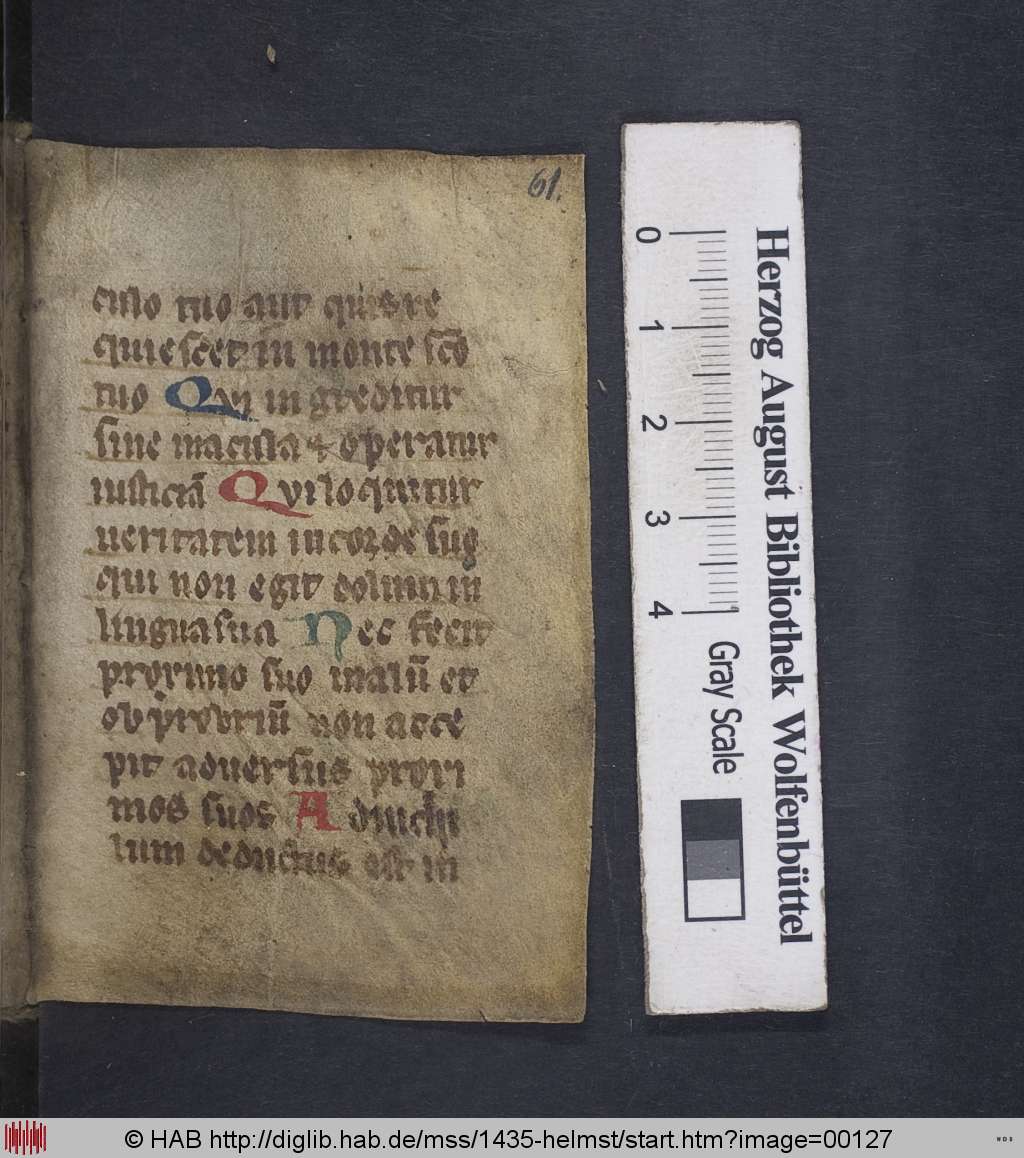 61.
culo tuo aut quis re
quiescet in monte sc̄o
tuo Qui ingreditur
sine macula ⁊ operatur
iusticiā Qui loquitur
ueritatem in corde suo
qui non egit dolum in
lingua sua Nec fecit
proximo suo malū et
obprobriū non acce
pit aduersus proxi
mos suos Ad nichi
lum deductus est in
Herzog August Bibliothek Wolfenbüttel
0 1 2 3 4 Gray Scale
© HAB http://diglib.hab.de/mss/1435-helmst/start.htm?image=00127